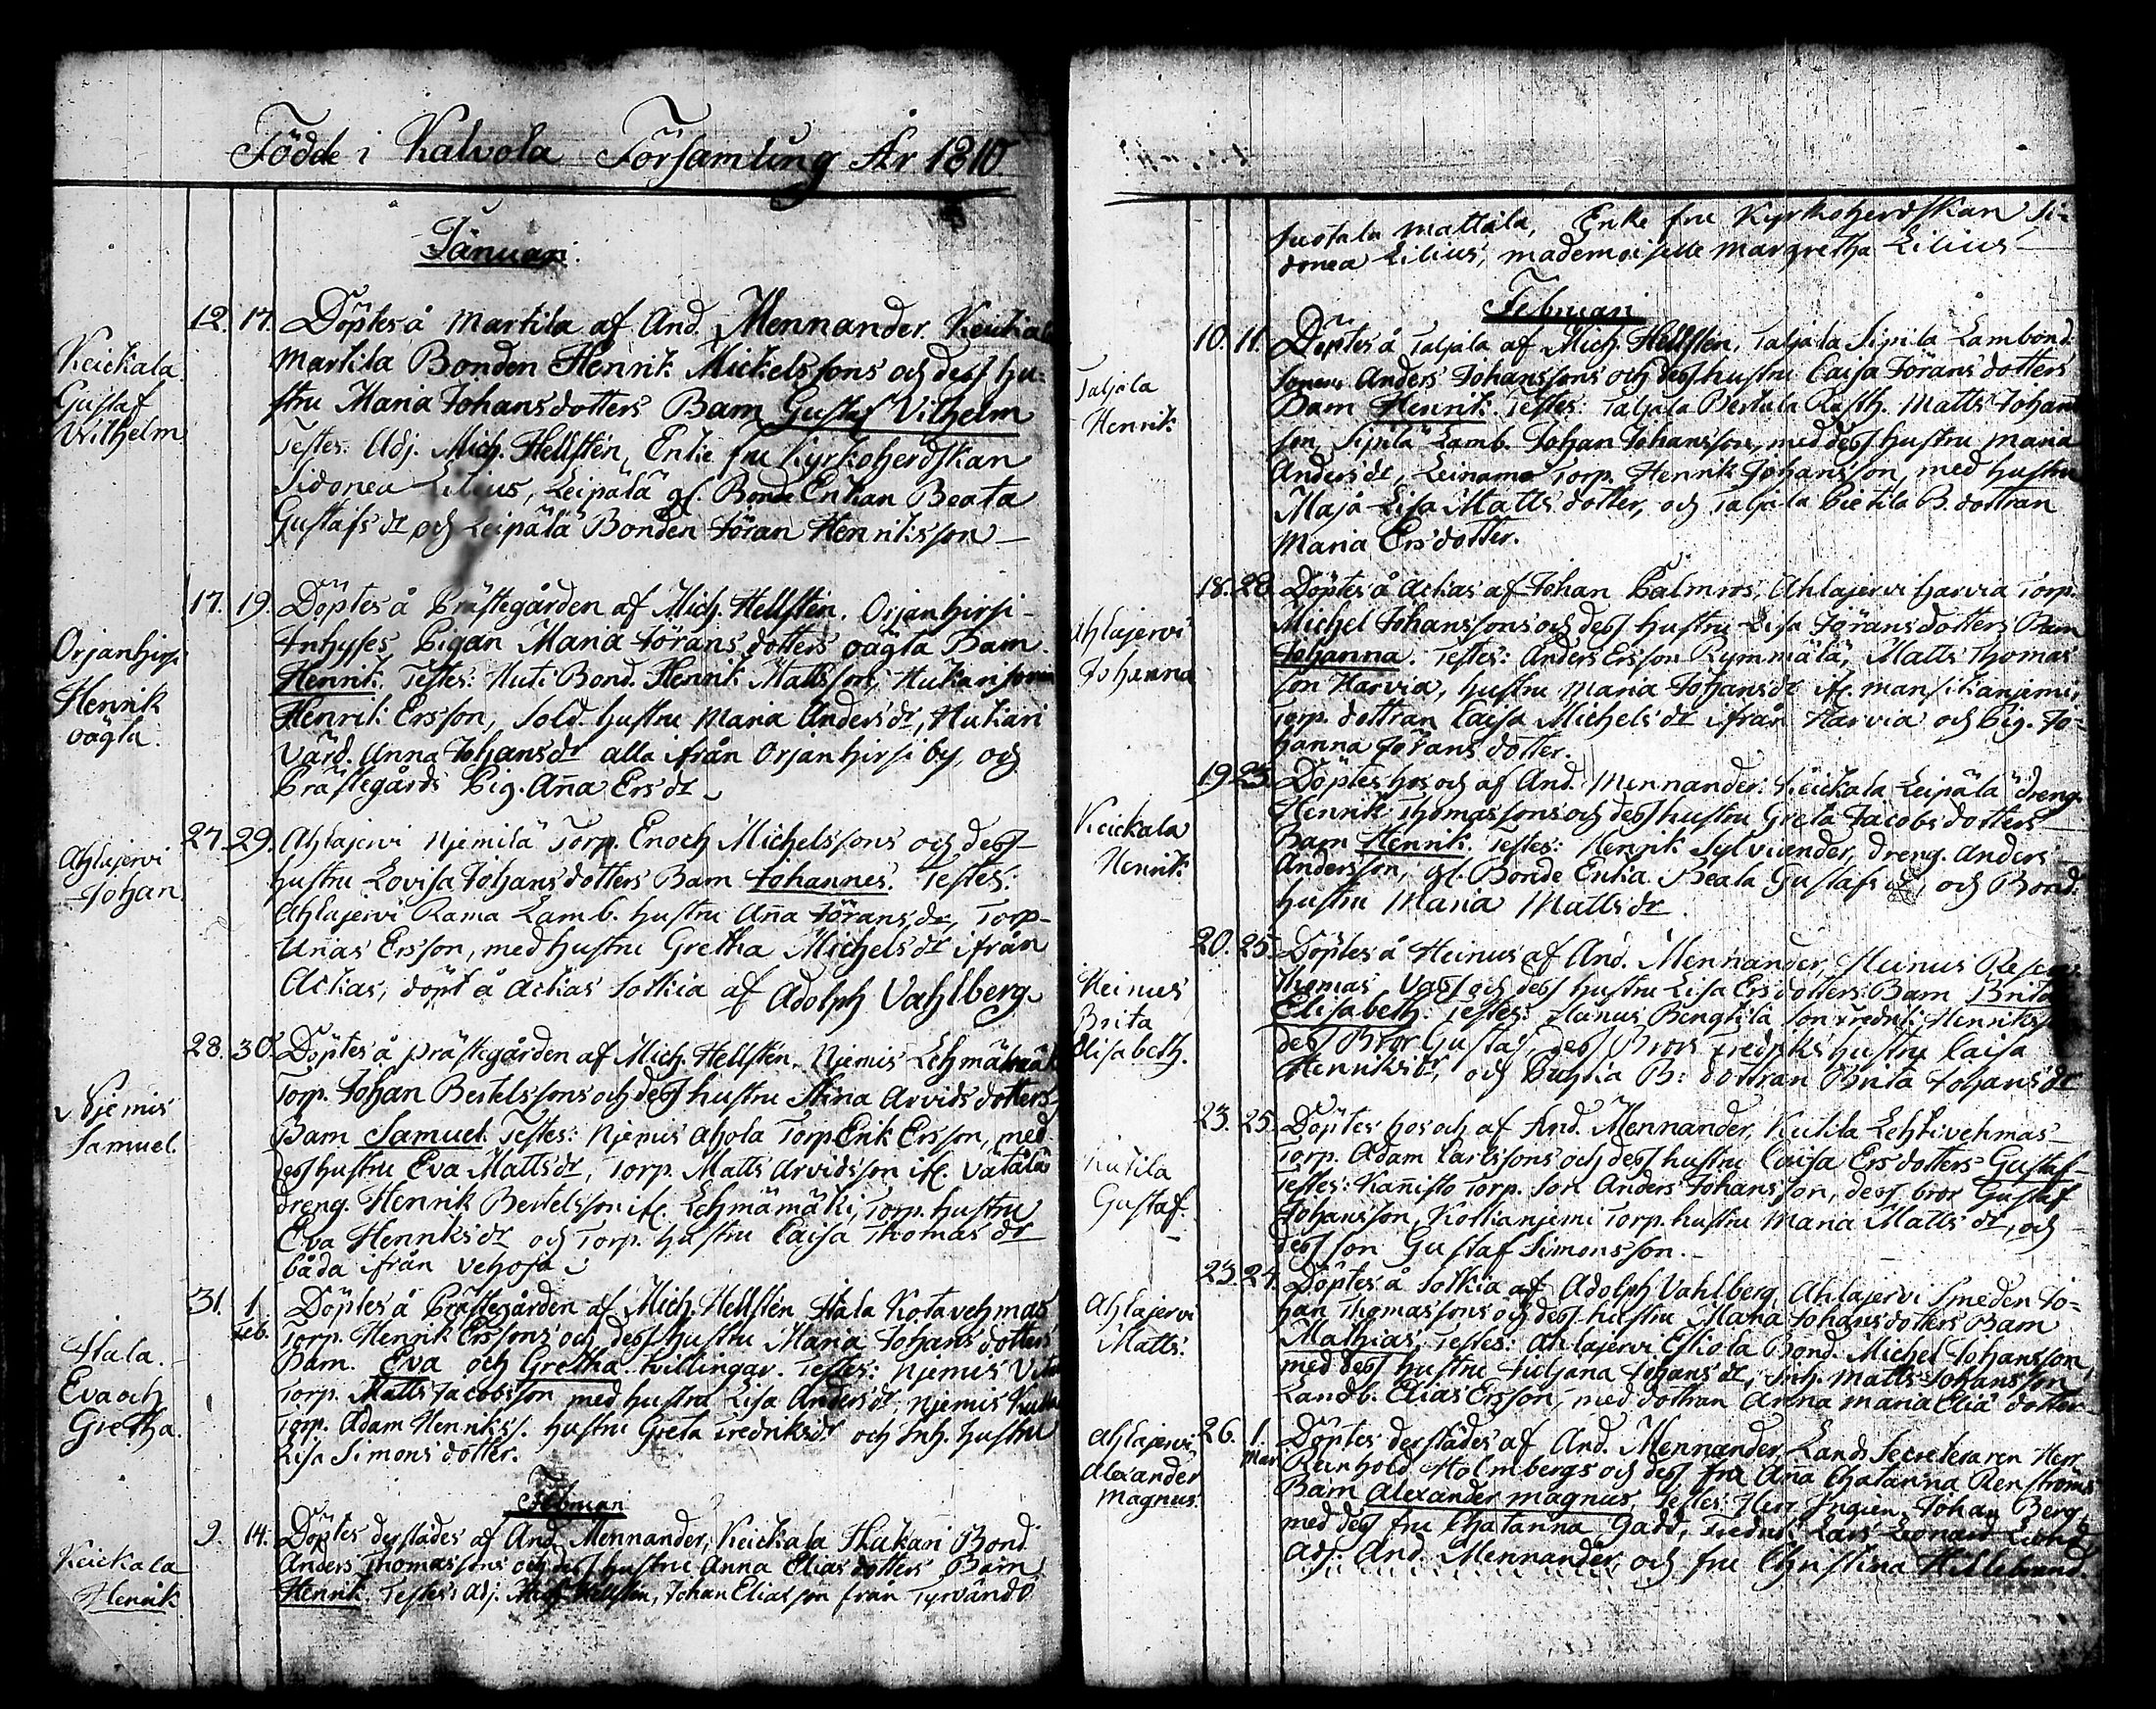 Födde i Kalvola Församling År 1810.
Januari.
Keickala
Gustaf
Wilhelm
12. 17. Döptes å Martila af And. Mennander. Keikala
Martila Bonden Henrik Mickelssons och dess hu-
stru Maria Johansdotters Barn Gustaf Vilhelm
Testes: Adj. Mich. Hellsten, Enke fru Kyrkoherdskan
Sidonea Lilius, Leipälä gl. Bonde Enkan Beata
Gustafs dr och Leipälä Bonden Jöran Henriksson
Orjanhirsi
Henrik
oägta.
17. 19. Döptes å Prästegården af Mich. Hellsten. Orjanhirsi
Inhyses Pigan Maria Jörans dotters oägta Barn.
Henrik. Testes: Huti Bond. Henrik Mattsson, Hukari sonen
Henrik Ersson, Sold. hustru Maria Anders dr, Hukari
Värd. Anna Johans dr alla ifrån Orjanhirsi by, och
Prästegårds Pig. Anna Ers dr
Ahlajervi
Johan
27. 29. Ahlajervi Njemilä Torp. Enoch Michelssons och dess
hustru Lovisa Johans dotters Barn Johannes. Testes:
Ahlajervi Rama Lamb. hustru Anna Jörans dr, Torp.
Ersson, med hustru Gretha Michels dr ifrån
Ackas, döpt å Ackas Sotkia af Adolph Vahlberg.
Njemis
Samuel.
28. 30. Döptes å prästegården af Mich. Hellsten. Njemis Lehmämäki
Torp. Johan Bertelssons och dess hustru Stina Arvids dotters
Barn Samuel. Testes: Njemis Ahola Torp Erik Ersson, med
dess hustru Eva Matts dr, Torp. Matts Arvidsson if. Vätälä
dreng. Henrik Bertelsson if. Lehmämäki, Torp. hustru
Eva Henriks dr och Torp. hustru Caisa Thomas dr
båda ifrån Vehoja.
Ítala.
Eva och
Gretha.
31. 1 Feb. Döptes å Prästegården af Mich. Hellsten Itala Kotavehmas
Torp. Henrik Erssons och dess hustru Maria Johans dotters
Barn. Eva och Gretha tvillingar. Testes: Njemis
Torp. Matts Jacobsson med hustru Lisa Anders dr, Njemis
Torp. Adam Henrikss. hustru Greta Fredriks dr och Inh. hustru
Lisa Simons dotter.
Februari
Keickala
Henrik
9. 14. Döptes derstädes af And. Mennander, Keickala Hakari Bond.
Anders Thomassons och dess hustru Anna Elias dotters Barn
Henrik. Testes: Adj. Mich. Hellsten, Johan Eliasson från Tyrvändö
Suotala Mattala, Enke fru Kyrkoherdskan Si-
donea Lilius, mademoiselle Margretha Lilius
Februari
Taljala
Henrik
10. 11. Döptes å Taljala af Mich. Hellsten, Taljala Sipila Lambond.
sonens Anders Johanssons och dess hustru Caisa Jörans dotters
Barn Henrik. Testes: Taljala Bertula Rusth. Matts Johan
son, Sipilä Lamb. Johan Johansson, med dess hustru Maria
Anders dr, Leinama Torp. Henrik Johansson, med hustru
Maja Lisa Matts dotter, och Taljala Pietila B. dottran
Maria Ers dotter.
Ahlajervi
Johanna
18. 20. Döptes å Ackas af Johan Palmros, Ahlajervi Harvia Torp.
Michel Johanssons och dess hustru Lisa Jörans dotters Barn
Johanna. Testes: Anders Ersson Rymmälä, Matts Thomas
son Harvia, hustru Maria Johans dr if. Mansikanjemi,
Torp. dottran Caisa Michels dr ifrån Harvia och Pig. Jo-
hanna Jörans dotter.
Keickala
Henrik
19. 23. Döptes hos och af And. Mennander. Keickala Leipälä dreng.
Henrik Thomassons och dess hustru Greta Jacobs dotters
Barn Henrik. Testes: Henrik Sylvander, dreng. Anders
Andersson, gl. Bonde Enkia Beata Gustafs dr, och Bond.
hustru Maria Matts dr.
Heinus
Brita
Elisabeth.
20. 25. Döptes å Heinus af And. Mennander, Heinus
Thomas Vass och dess hustru Lisa Ers dotters Barn Brita
Elisabeth. Testes: Heinus Bengtilä son Fredrik Henriksson
dess Bror Gustaf dess Brors Fredriks hustru Caisa
Henriks dr, och B: dottran Brita Johans dr
Kutila
Gustaf.
23. 25. Döptes hos och af And. Mennander, Kutila Lehtivehmas
Torp. Adam Carlssons och dess hustru Caisa Ers dotters Gustaf
Testes: Kannisto Torp. son Anders Johansson, dess bror Gustaf
Johansson, Kotkanjemi Torp. hustru Maria Matts dr, och
dess son Gustaf Simonsson.
Ahlajervi
Matts.
23. 24. Döptes å Sotkia af Adolph Vahlberg, Ahlajervi Smeden Jo-
han Thomassons och dess hustru Maria Johans dotters Barn
Mathias, Testes: Ahlajervi Eskola Bond. Michel Johansson,
med dess hustru Juliana Johans dr, Inh. Matts Johansson
Landb. Elias Ersson, med dottran Anna Maria Elia dotter
Ahlajervi
Alexander
Magnus.
26. 1. Mar. Döptes derstädes af And. Mennander, Lands Secreteraren Herr
Reinhold Holmbergs och dess fru Anna Chatarina Renströms
Barn Alexander Magnus, Testes: Herr Johan Berg,
med dess fru Chatarina Gadd, Lars Leonard
Adj. And. Mennander, och fru Christina Hillebrand.